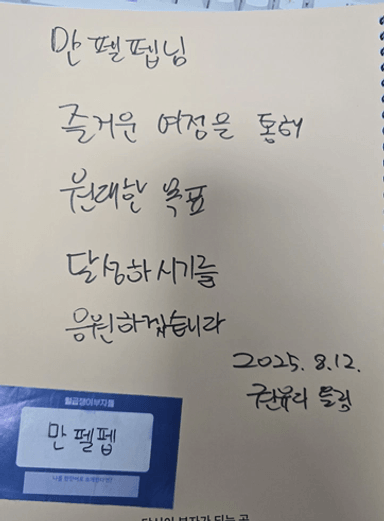 만 펠펩님
즐거운 여정을 통해
원대한 목표
달성하시기를
응원하겠습니다
2025. 8. 12.
권유디 드림
월급쟁이부자들
만 펠펩
나를 한단어로 소개한다면?